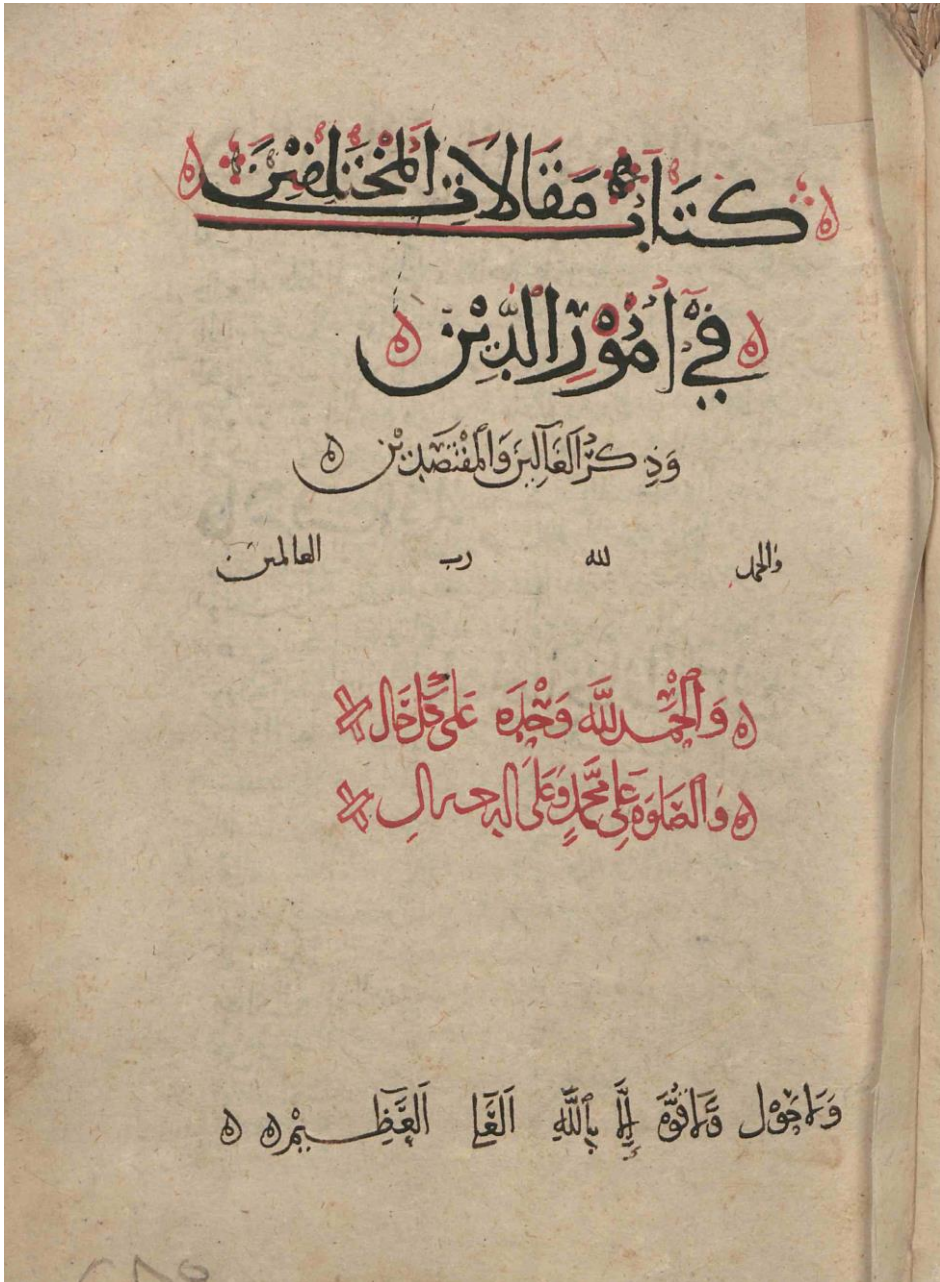 كتاب مقالات المختلفين
في أمور الدين
وذكر الغالين والمقتصدين
والحمد لله رب العالمين
والحمد لله وحده على كل حال
والصلوة على محمد وعلى اله خير ال
ولا حول ولا قوة إلا بالله العلي العظيم